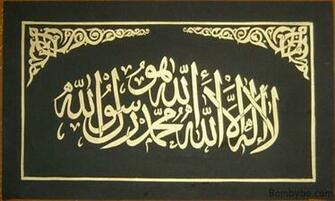 لا إله إلا الله هو محمد رسول الله
Bombybo.com